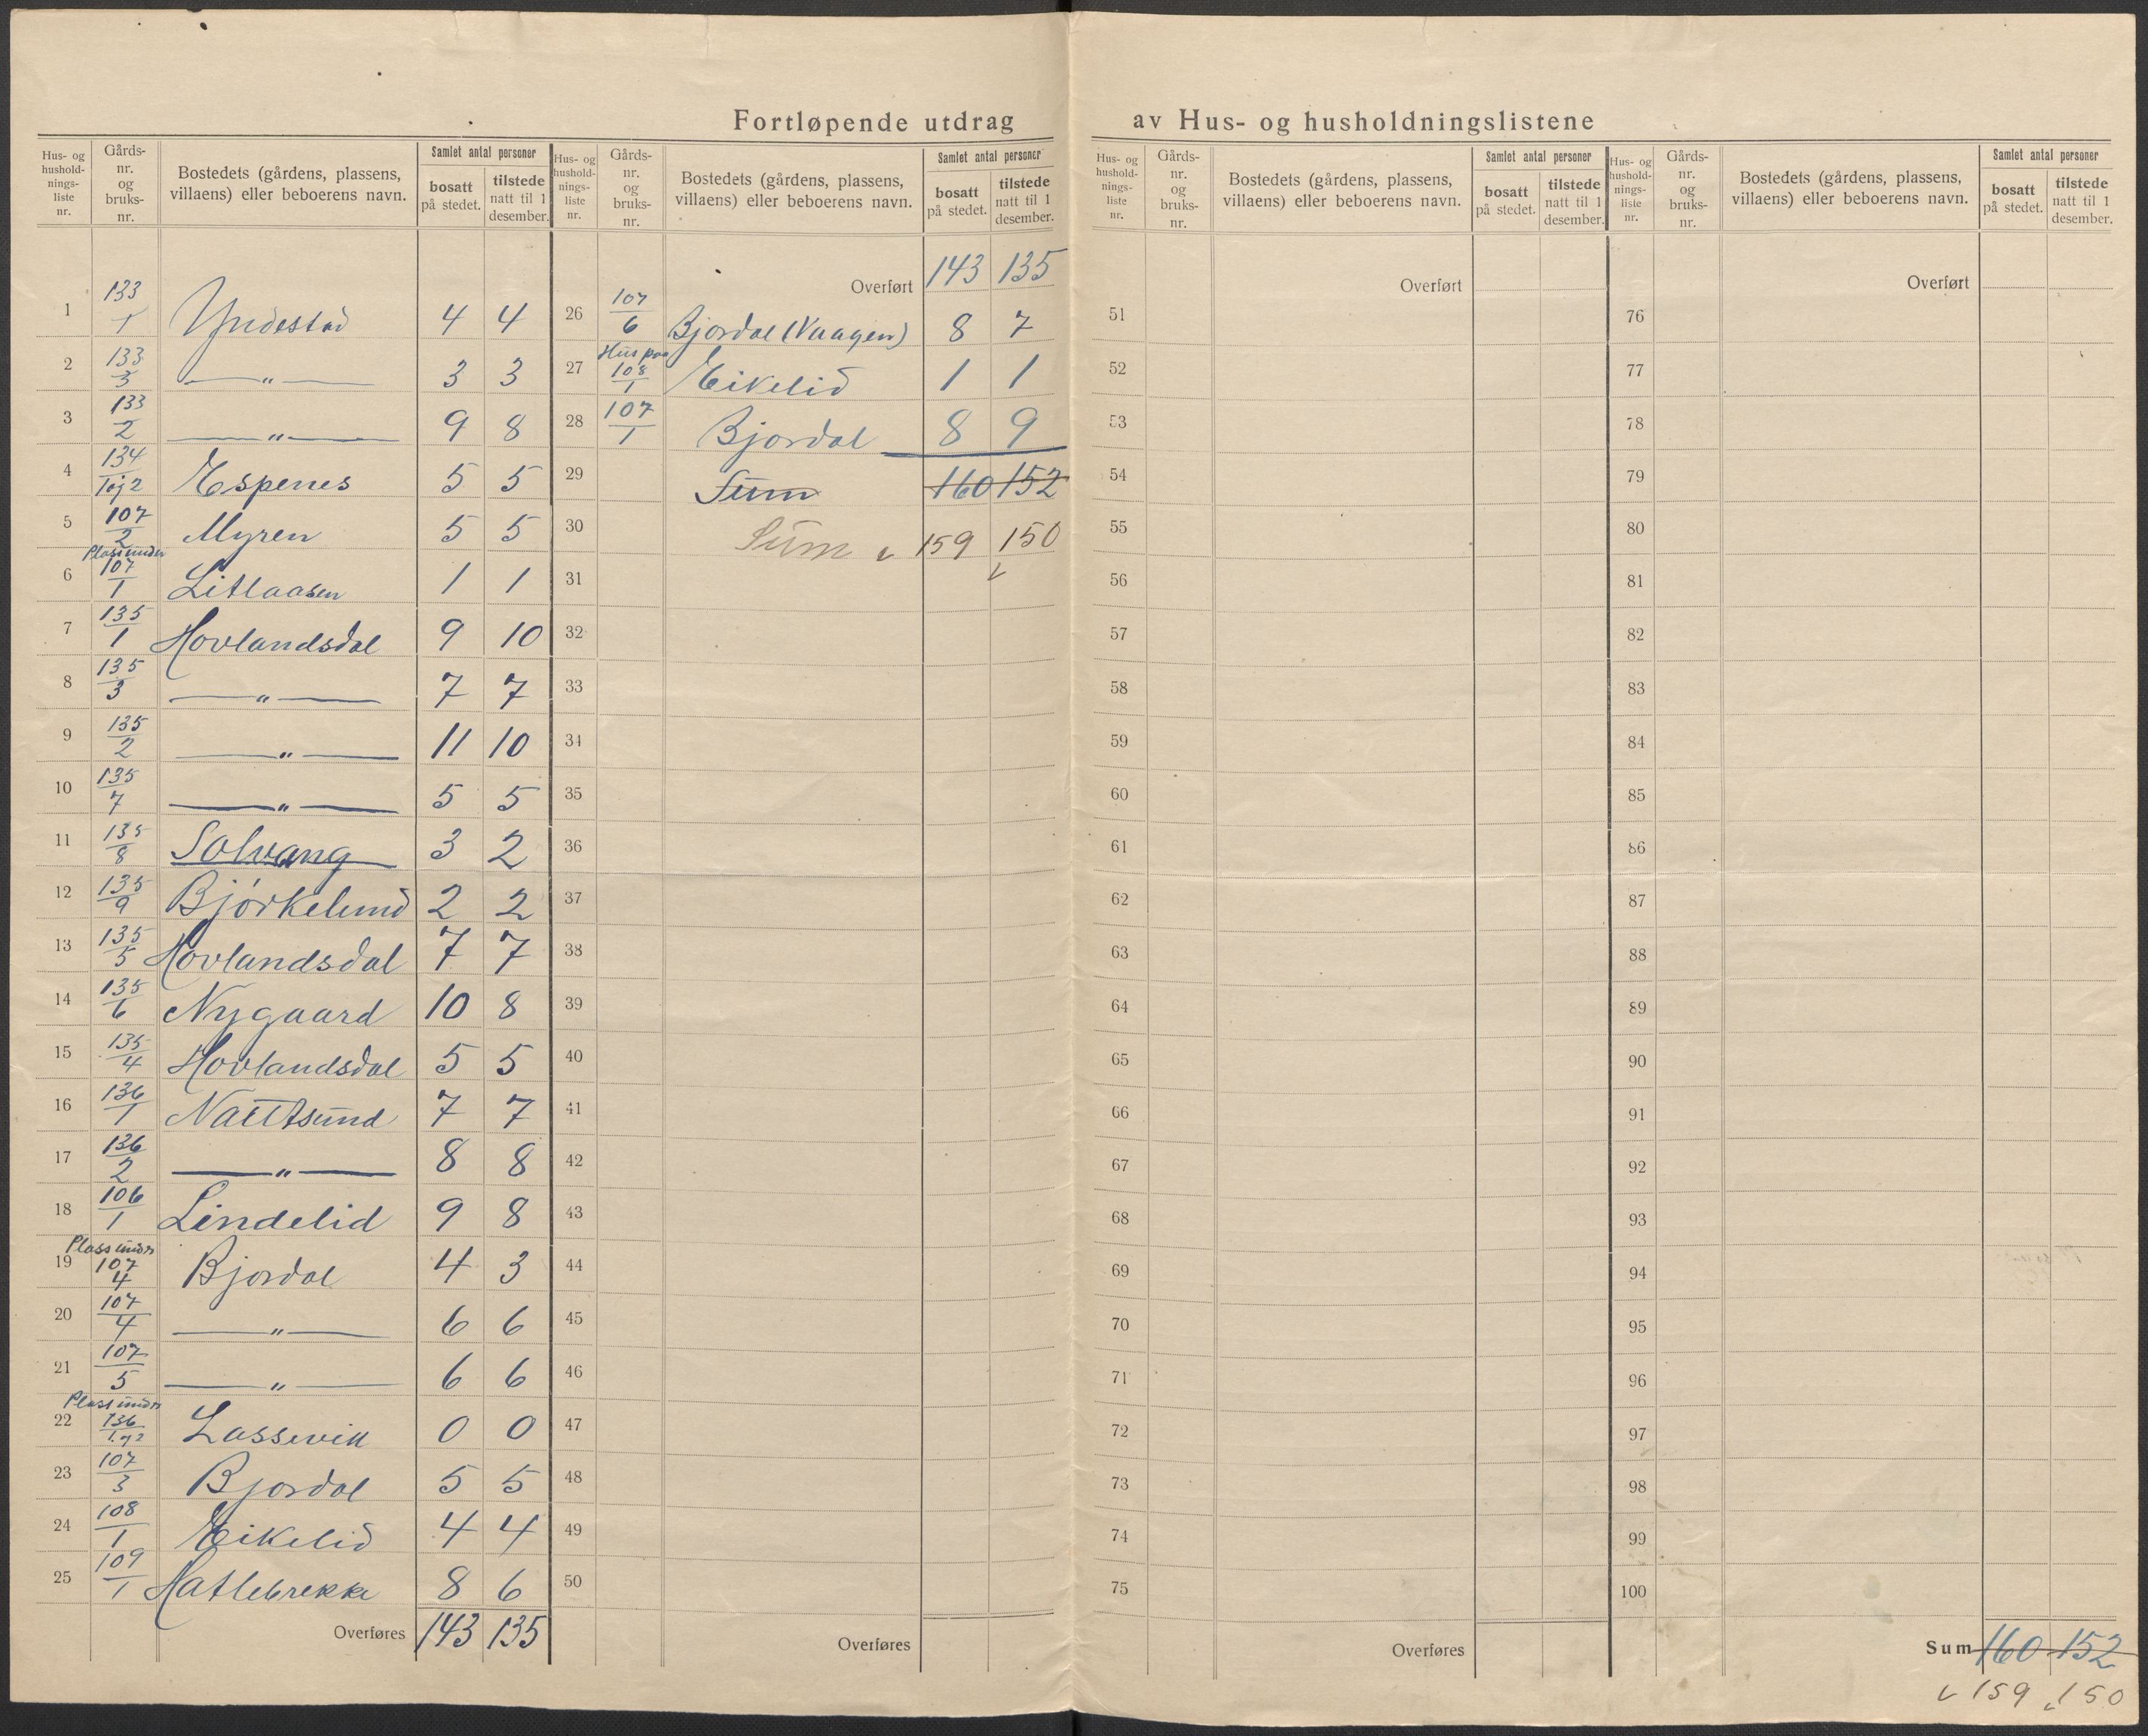 Fortløpende utdrag av Hus- og husholdningslistene
Hus- og husholdnings-liste nr. | Gårds-nr. og bruks-nr. | Bostedets (gårdens, plassens, villaens) eller beboerens navn. | Samlet antal personer | bosatt på stedet. | tilstede natt til 1 desember.
1 133/1 Yndestad 4 4
2 133/3 —„— 3 3
3 133/2 —„— 9 8
4 134/1oj2 Espenes 5 5
5 107/2 Myren 5 5
6 Plass under 107/1 Litlaasen 1 1
7 135/1 Hovlandsdal 9 10
8 135/3 —„— 7 7
9 135/2 —„— 11 10
10 135/7 —„— 5 5
11 135/8 Solvang 3 2
12 135/9 Bjórkelund 2 2
13 135/5 Hovlandsdal 7 7
14 135/6 Nygaard 10 8
15 135/4 Hovlandsdal 5 5
16 136/1 Nattsund 7 7
17 136/2 —„— 8 8
18 106/1 Lindelid 9 8
19 Plass under 107/4 Bjordal 4 3
20 107/4 —„— 6 6
21 107/5 —„— 6 6
22 Plass under 136/1.og2 Lassevik 0 0
23 107/3 Bjordal 5 5
24 108/1 Eikelid 4 4
25 109/1 Hatlebrekke 8 6
Overføres 143 135
Hus- og husholdnings-liste nr. | Gårds-nr. og bruks-nr. | Bostedets (gårdens, plassens, villaens) eller beboerens navn. | Samlet antal personer | bosatt på stedet. | tilstede natt til 1 desember.
Overført 143 135
26 107/6 Bjordal (Vaagen) 8 7
27 Hus paa 108/1 Eikelid 1 1
28 107/1 Bjordal 8 9
29 Sum 160 152
30 Sum 159 150
31
32
33
34
35
36
37
38
39
40
41
42
43
44
45
46
47
48
49
50
Overføres
Hus- og husholdnings-liste nr. | Gårds-nr. og bruks-nr. | Bostedets (gårdens, plassens, villaens) eller beboerens navn. | Samlet antal personer | bosatt på stedet. | tilstede natt til 1 desember.
Overført
51
52
53
54
55
56
57
58
59
60
61
62
63
64
65
66
67
68
69
70
71
72
73
74
75
Overføres
Hus- og husholdnings-liste nr. | Gårds-nr. og bruks-nr. | Bostedets (gårdens, plassens, villaens) eller beboerens navn. | Samlet antal personer | bosatt på stedet. | tilstede natt til 1 desember.
Overført
76
77
78
79
80
81
82
83
84
85
86
87
88
89
90
91
92
93
94
95
96
97
98
99
100
Sum 160 152
159 150